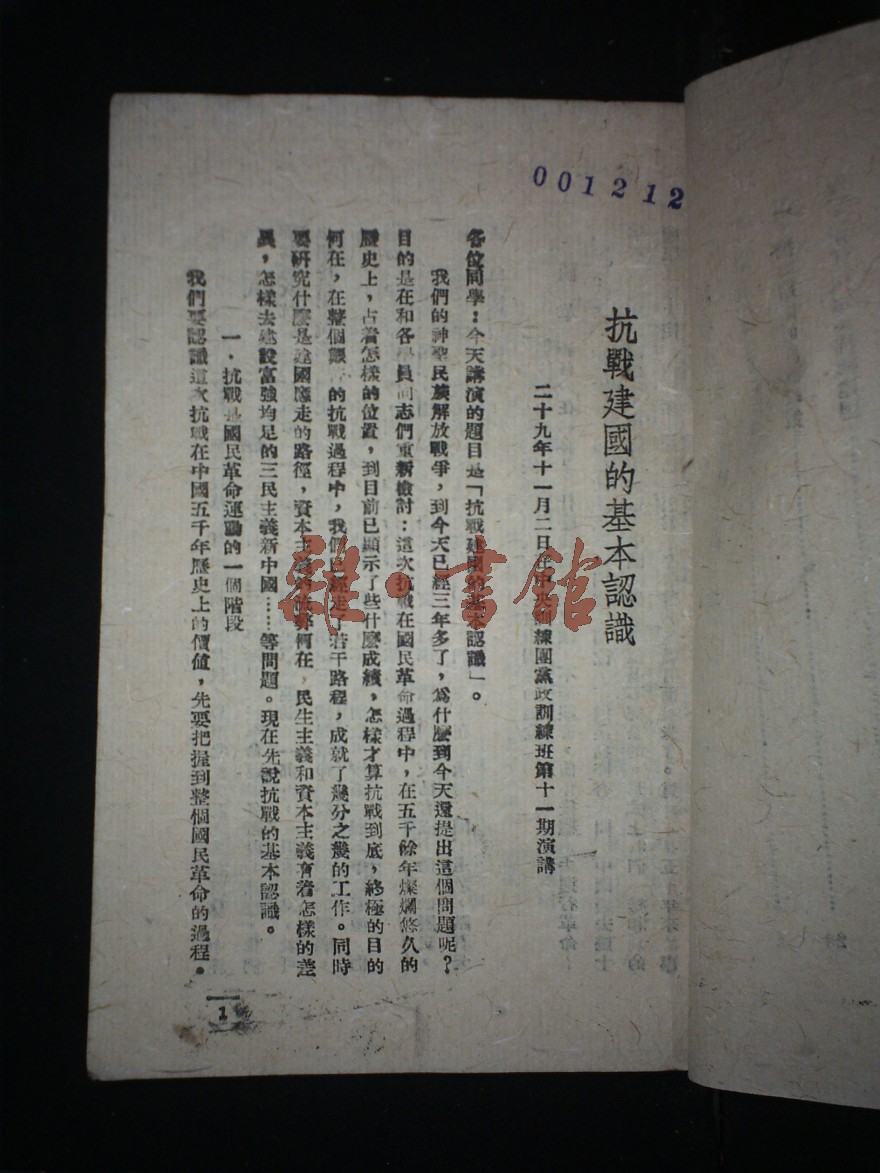 001212
抗戰建國的基本認識
二十九年十一月二日在中央訓練團黨政訓練班第十一期演講
各位同學：今天講演的題目是「抗戰建國的基本認識」。
我們的神聖民族解放戰爭，到今天已經三年多了，爲什麽到今天還提出這個問題呢？
目的是在和各學員同志們重新檢討：這次抗戰在國民革命過程中，在五千餘年燦爛悠久的
歷史上，占着怎樣的位置，到目前已顯示了些什麽成績，怎樣才算抗戰到底，終極的目的
何在，在整個的抗戰過程中，我們已經走了若干路程，成就了幾分之幾的工作。同時
要研究什麽是建國應走的路徑，資本主義的流弊何在，民生主義和資本主義有着怎樣的差
異，怎樣去建設富強均足的三民主義新中國……等問題。現在先說抗戰的基本認識。
一．抗戰是國民革命運動的一個階段
我們要認識這次抗戰在中國五千年歷史上的價值，先要把握到整個國民革命的過程。
1
雜·書館